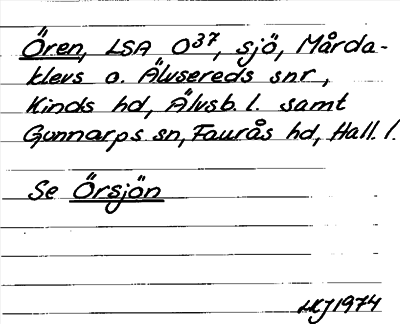 Ören, LSA O37, sjö, Mårda-
klevs o. Älvsereds snr,
Kinds hd, Älvsb. l. samt
Gunnarps sn, Faurås hd, Hall. l.
Se Örsjön
HKJ 1974